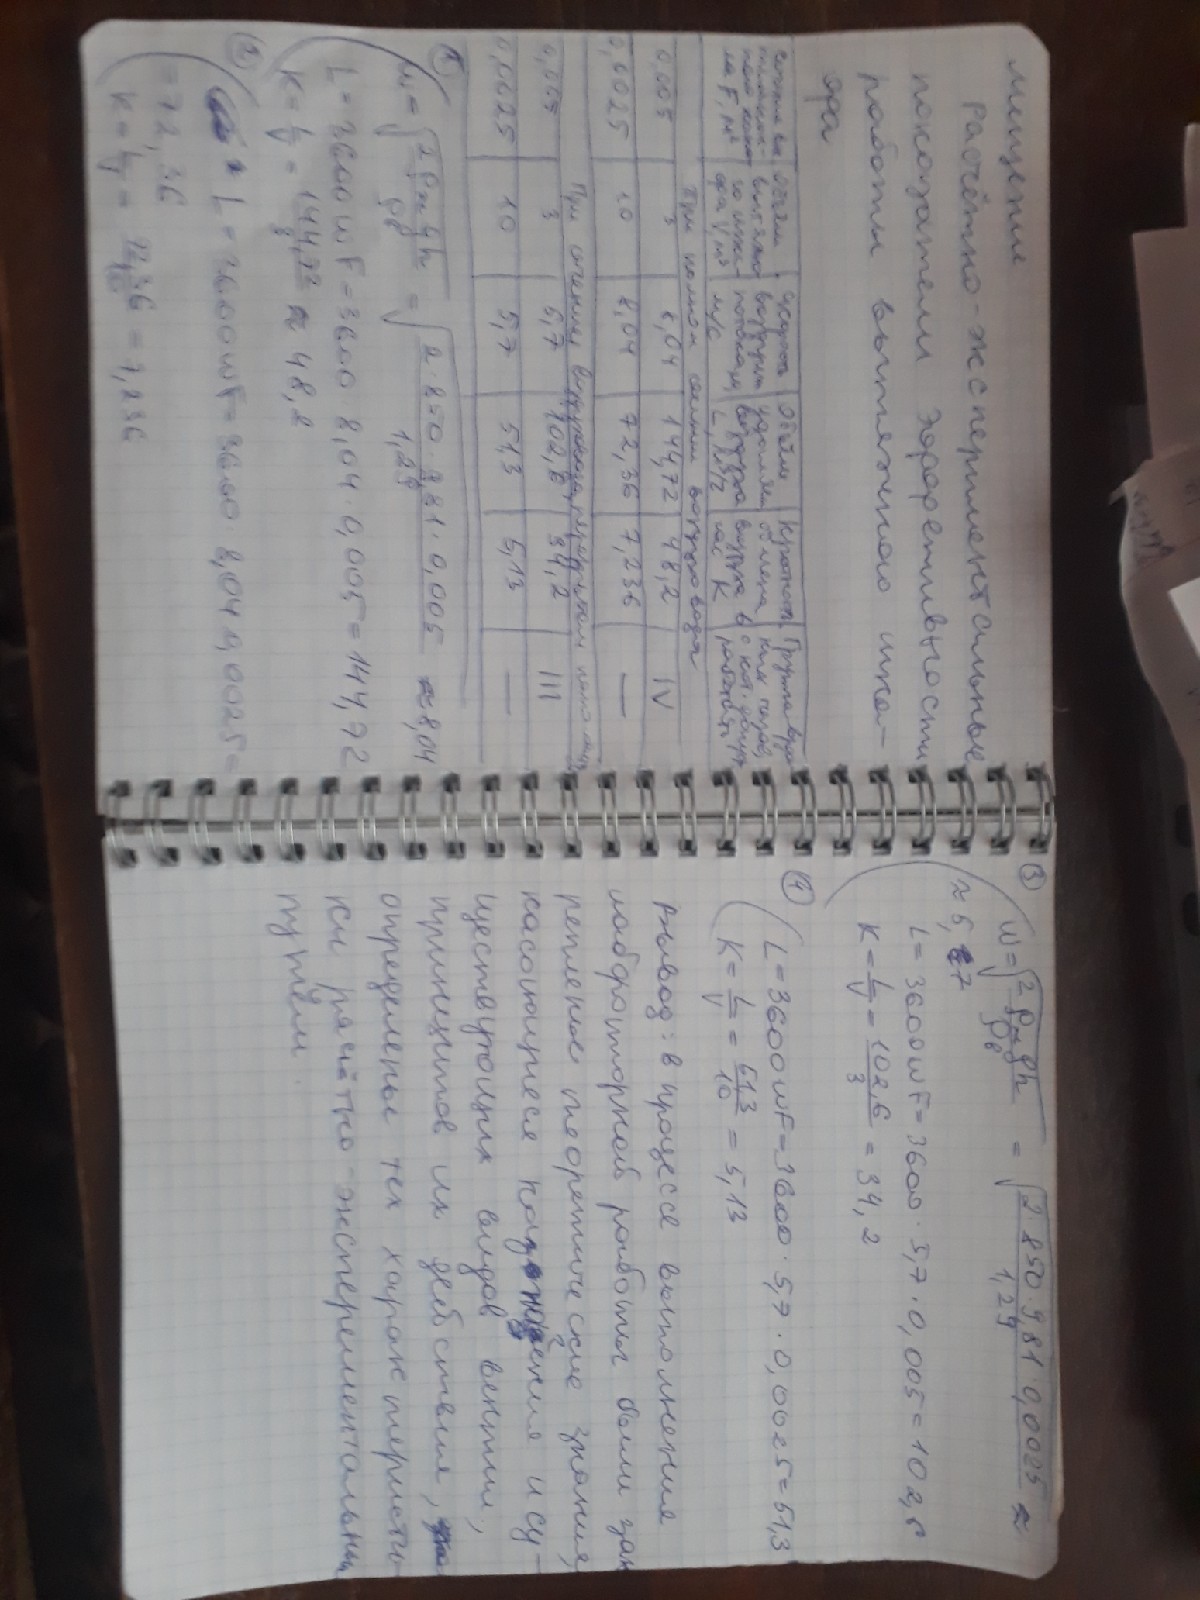 мещение
Расчётно-экспериментальные
показатели эффективности
работы вытяжного шка-
фа
Сечение вы- Объём Скорость Объём Кратность Группа вред-
вытяжно- воздушн. удаляем. обмена ных газов,
го шка- потока w, воздуха воздуха в с кот. допуск.
ла F, м² фа V, м³ м/с L, м³/ч час K работать
При полном сечении воздуховода
0,005 3 8,04 144,72 48,2 IV
0,0025 10 8,04 72,36 7,236 —
При сечении воздуховода, перекрытом
0,005 3 5,7 102,6 34,2 III
0,0025 10 5,7 51,3 5,13 —
① w = √(2ρж gh / ρв) = √(2·850·9,81·0,005 / 1,29) ≈ 8,04
L = 3600wF = 3600·8,04·0,005 = 144,72
K = L/V = 144,72/3 ≈ 48,2
② L = 3600wF = 3600·8,04·0,0025 =
= 72,36
K = L/V = 72,36/10 = 7,236
③ w = √(2ρж gh / ρв) = √(2·850·9,81·0,0025 / 1,29) ≈
≈ 5,7
L = 3600wF = 3600·5,7·0,005 = 102,6
K = L/V = 102,6/3 = 34,2
④ L = 3600wF = 3600·5,7·0,0025 = 51,3
K = L/V = 51,3/10 = 5,13
Вывод: в процессе выполнения
лабораторной работы были зак
реплены теоретические знания,
касающиеся назначения и су-
ществующих видов вентил,
принципов их действия,
определены тех характеристи-
ки расчётно-эксперементальным
путём.